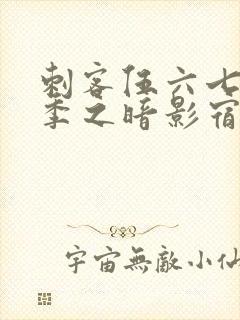 刺客伍六七
季之暗影宿
宇宙無敵小仙